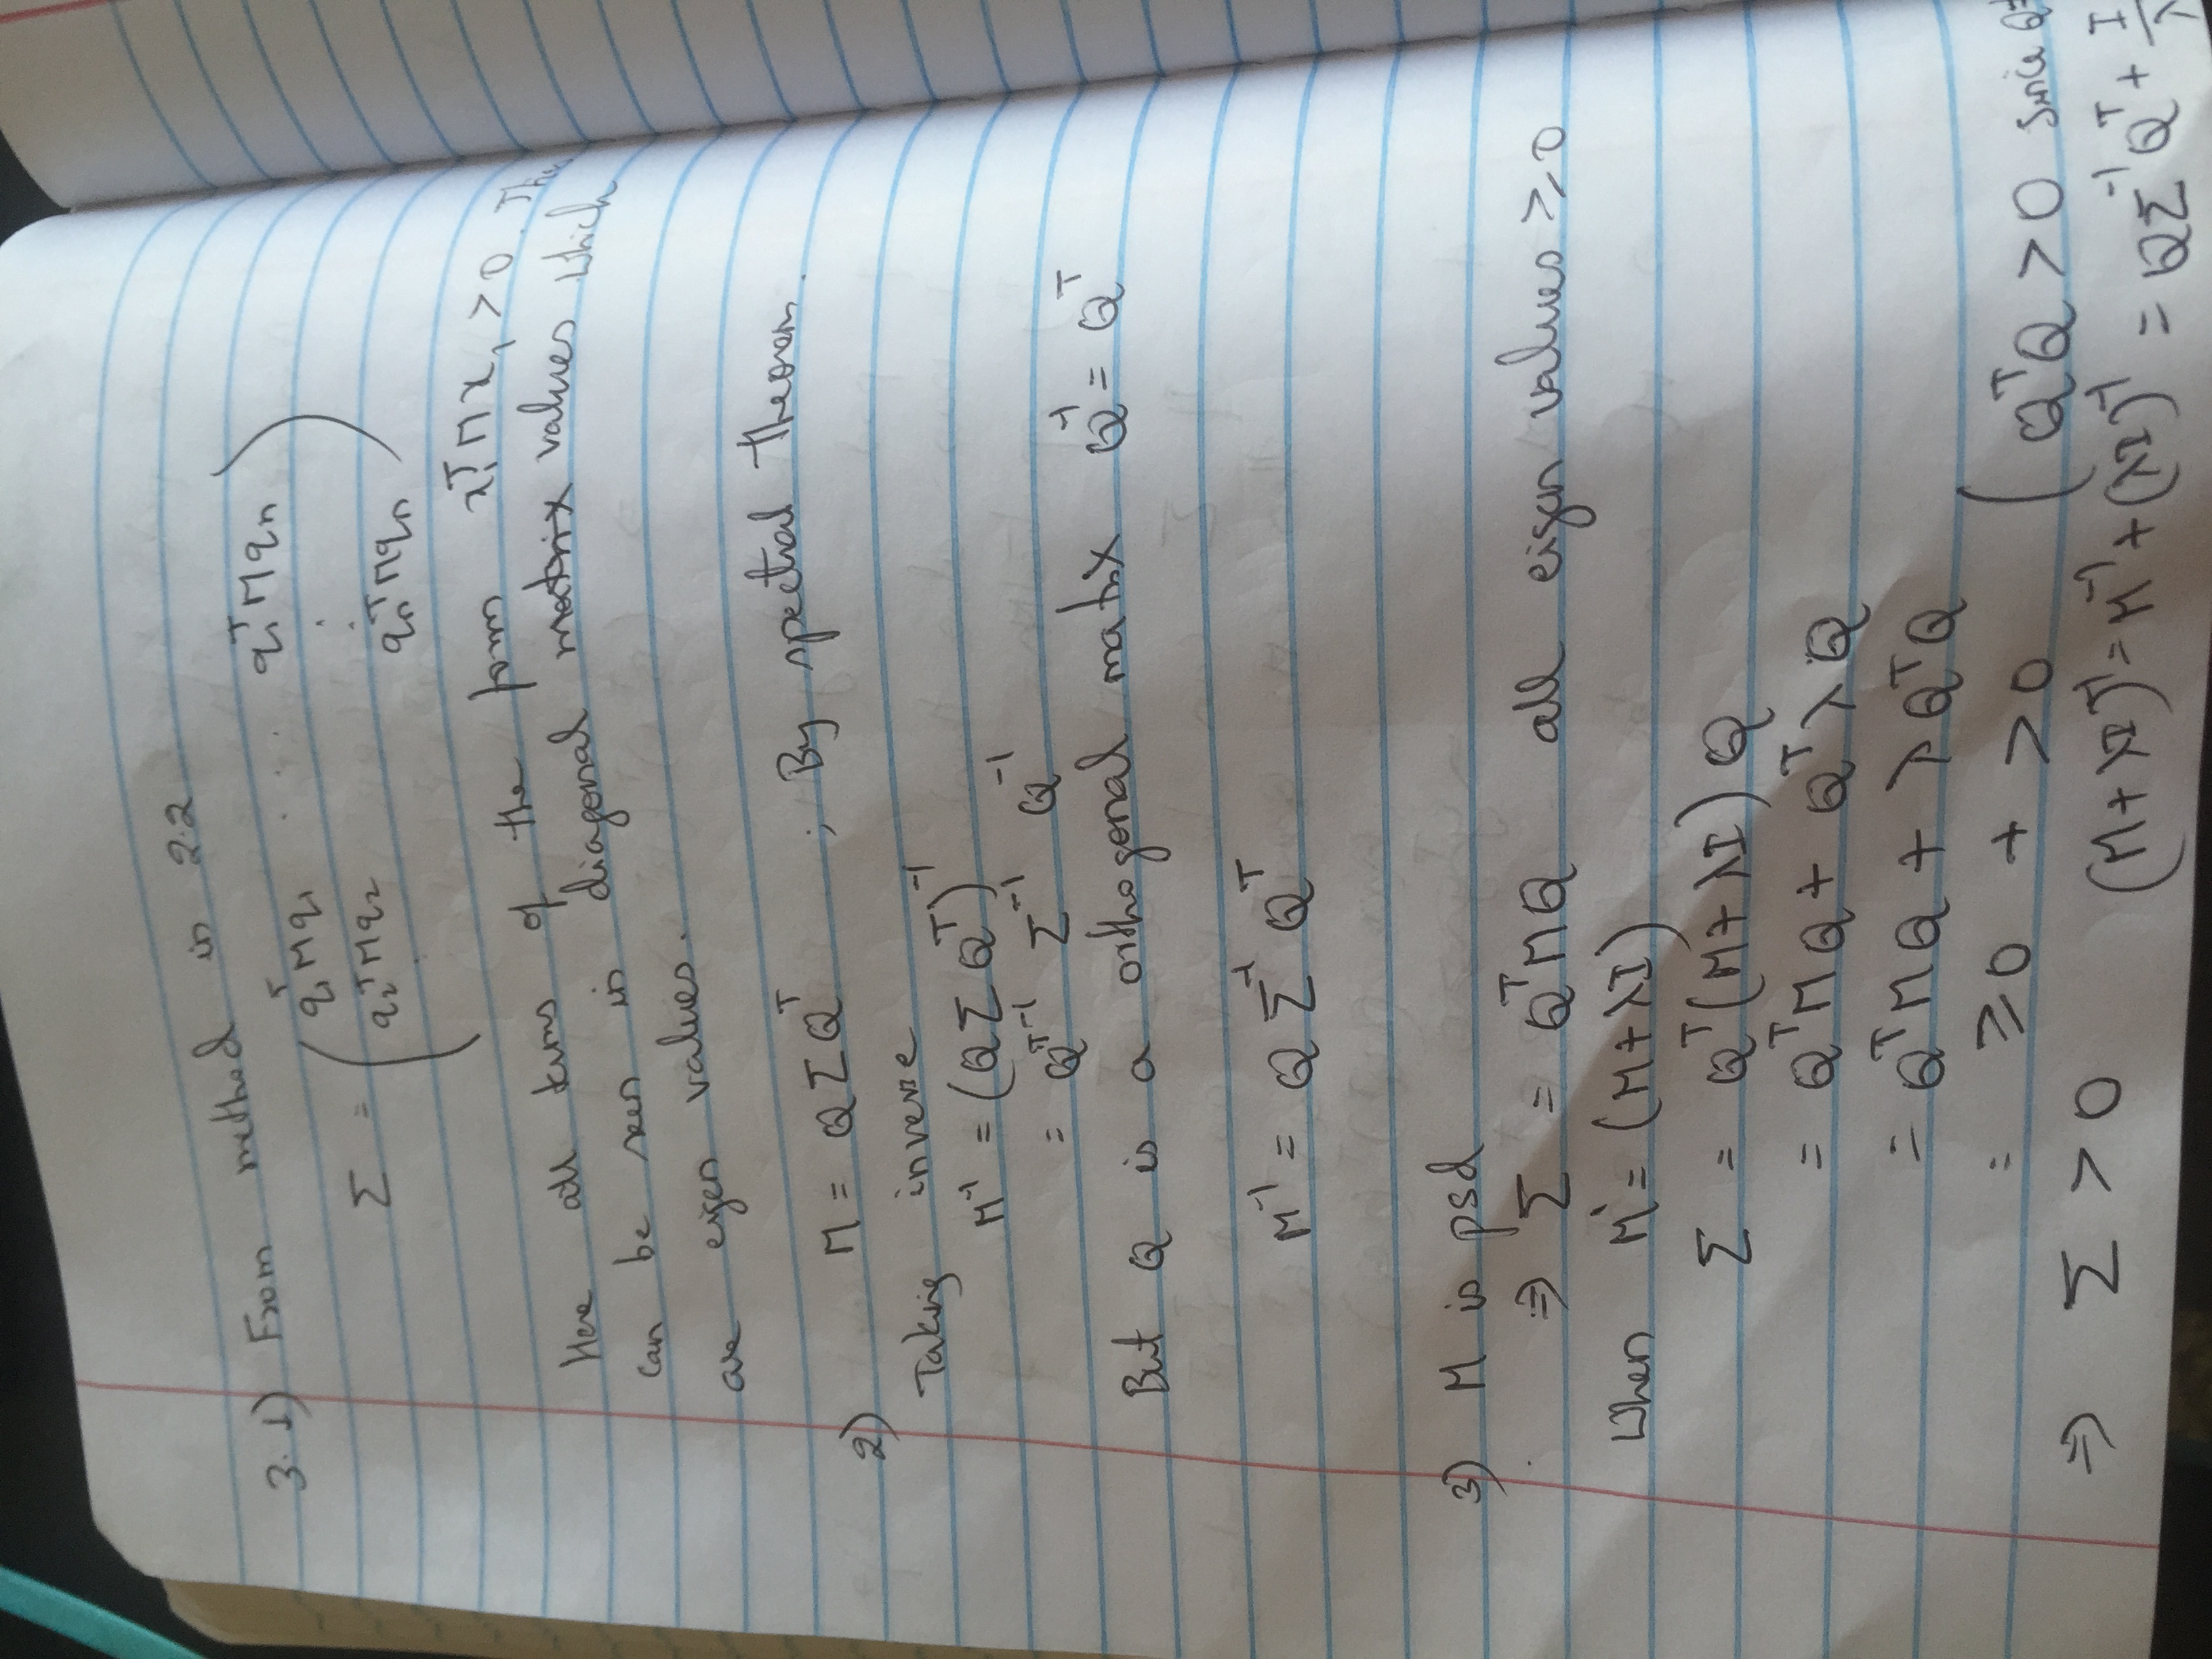 3.1) From method in 2.2
Σ = ( q₁ᵀMq₁ ... q₁ᵀMqn
q₂ᵀMq₂ : qnᵀMqn )
Here all terms of the form x₁ᵀMx₁ > 0.
can be seen in diagonal matrix values which
are eigen values.
2) M = QΣQᵀ ; By spectral Theorem.
Taking inverse
M⁻¹ = (QΣQᵀ)⁻¹
= Qᵀ⁻¹ Σ⁻¹ Q⁻¹
But Q is a orthogonal matrix Q⁻¹ = Qᵀ
M⁻¹ = Q Σ⁻¹ Qᵀ
3) M is psd
⇒ Σ = QᵀMQ all eigen values ≥ 0
When M' = (M+λI)
Σ = Qᵀ(M+λI)Q
= QᵀMQ + QᵀλQ
= QᵀMQ + λQᵀQ
= ≥0 + >0 (QᵀQ > 0 since Q
⇒ Σ > 0 (M+λI)⁻¹ = M⁻¹ + (λI)⁻¹ = QΣ⁻¹Qᵀ + I/λ